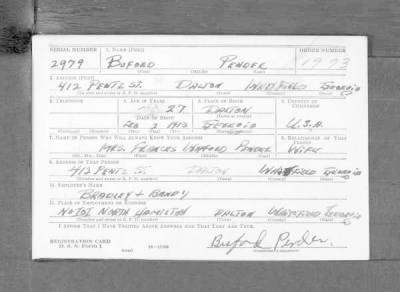 SERIAL NUMBER 1. NAME (Print) ORDER NUMBER
2979 BUFORD PENDER 1973
(First) (Middle) (Last)
2. ADDRESS (Print)
412 PENTZ ST. DALTON WHITFIELD GEORGIA
(Number and street or R. F. D. number) (Town) (County) (State)
3. TELEPHONE 4. AGE IN YEARS 5. PLACE OF BIRTH 6. COUNTRY OF CITIZENSHIP
27 DALTON
DATE OF BIRTH
FEB 2 1913 GEORGIA U.S.A.
7. NAME OF PERSON WHO WILL ALWAYS KNOW YOUR ADDRESS 8. RELATIONSHIP OF THAT PERSON
MRS. FRANCES WAFFORD PENDER WIFE
(Mr., Mrs., Miss) (First) (Middle) (Last)
9. ADDRESS OF THAT PERSON
412 PENTZ ST. DALTON WHITFIELD GEORGIA
(Number and street or R. F. D. number) (Town) (County) (State)
10. EMPLOYER'S NAME
BRADLEY & BANDY
11. PLACE OF EMPLOYMENT OR BUSINESS
NORTH HAMILTON DALTON WHITFIELD GEORGIA
(Number and street or R. F. D. number) (Town) (County) (State)
I AFFIRM THAT I HAVE VERIFIED ABOVE ANSWERS AND THAT THEY ARE TRUE.
REGISTRATION CARD
D. S. S. Form 1 (over) Buford Pender